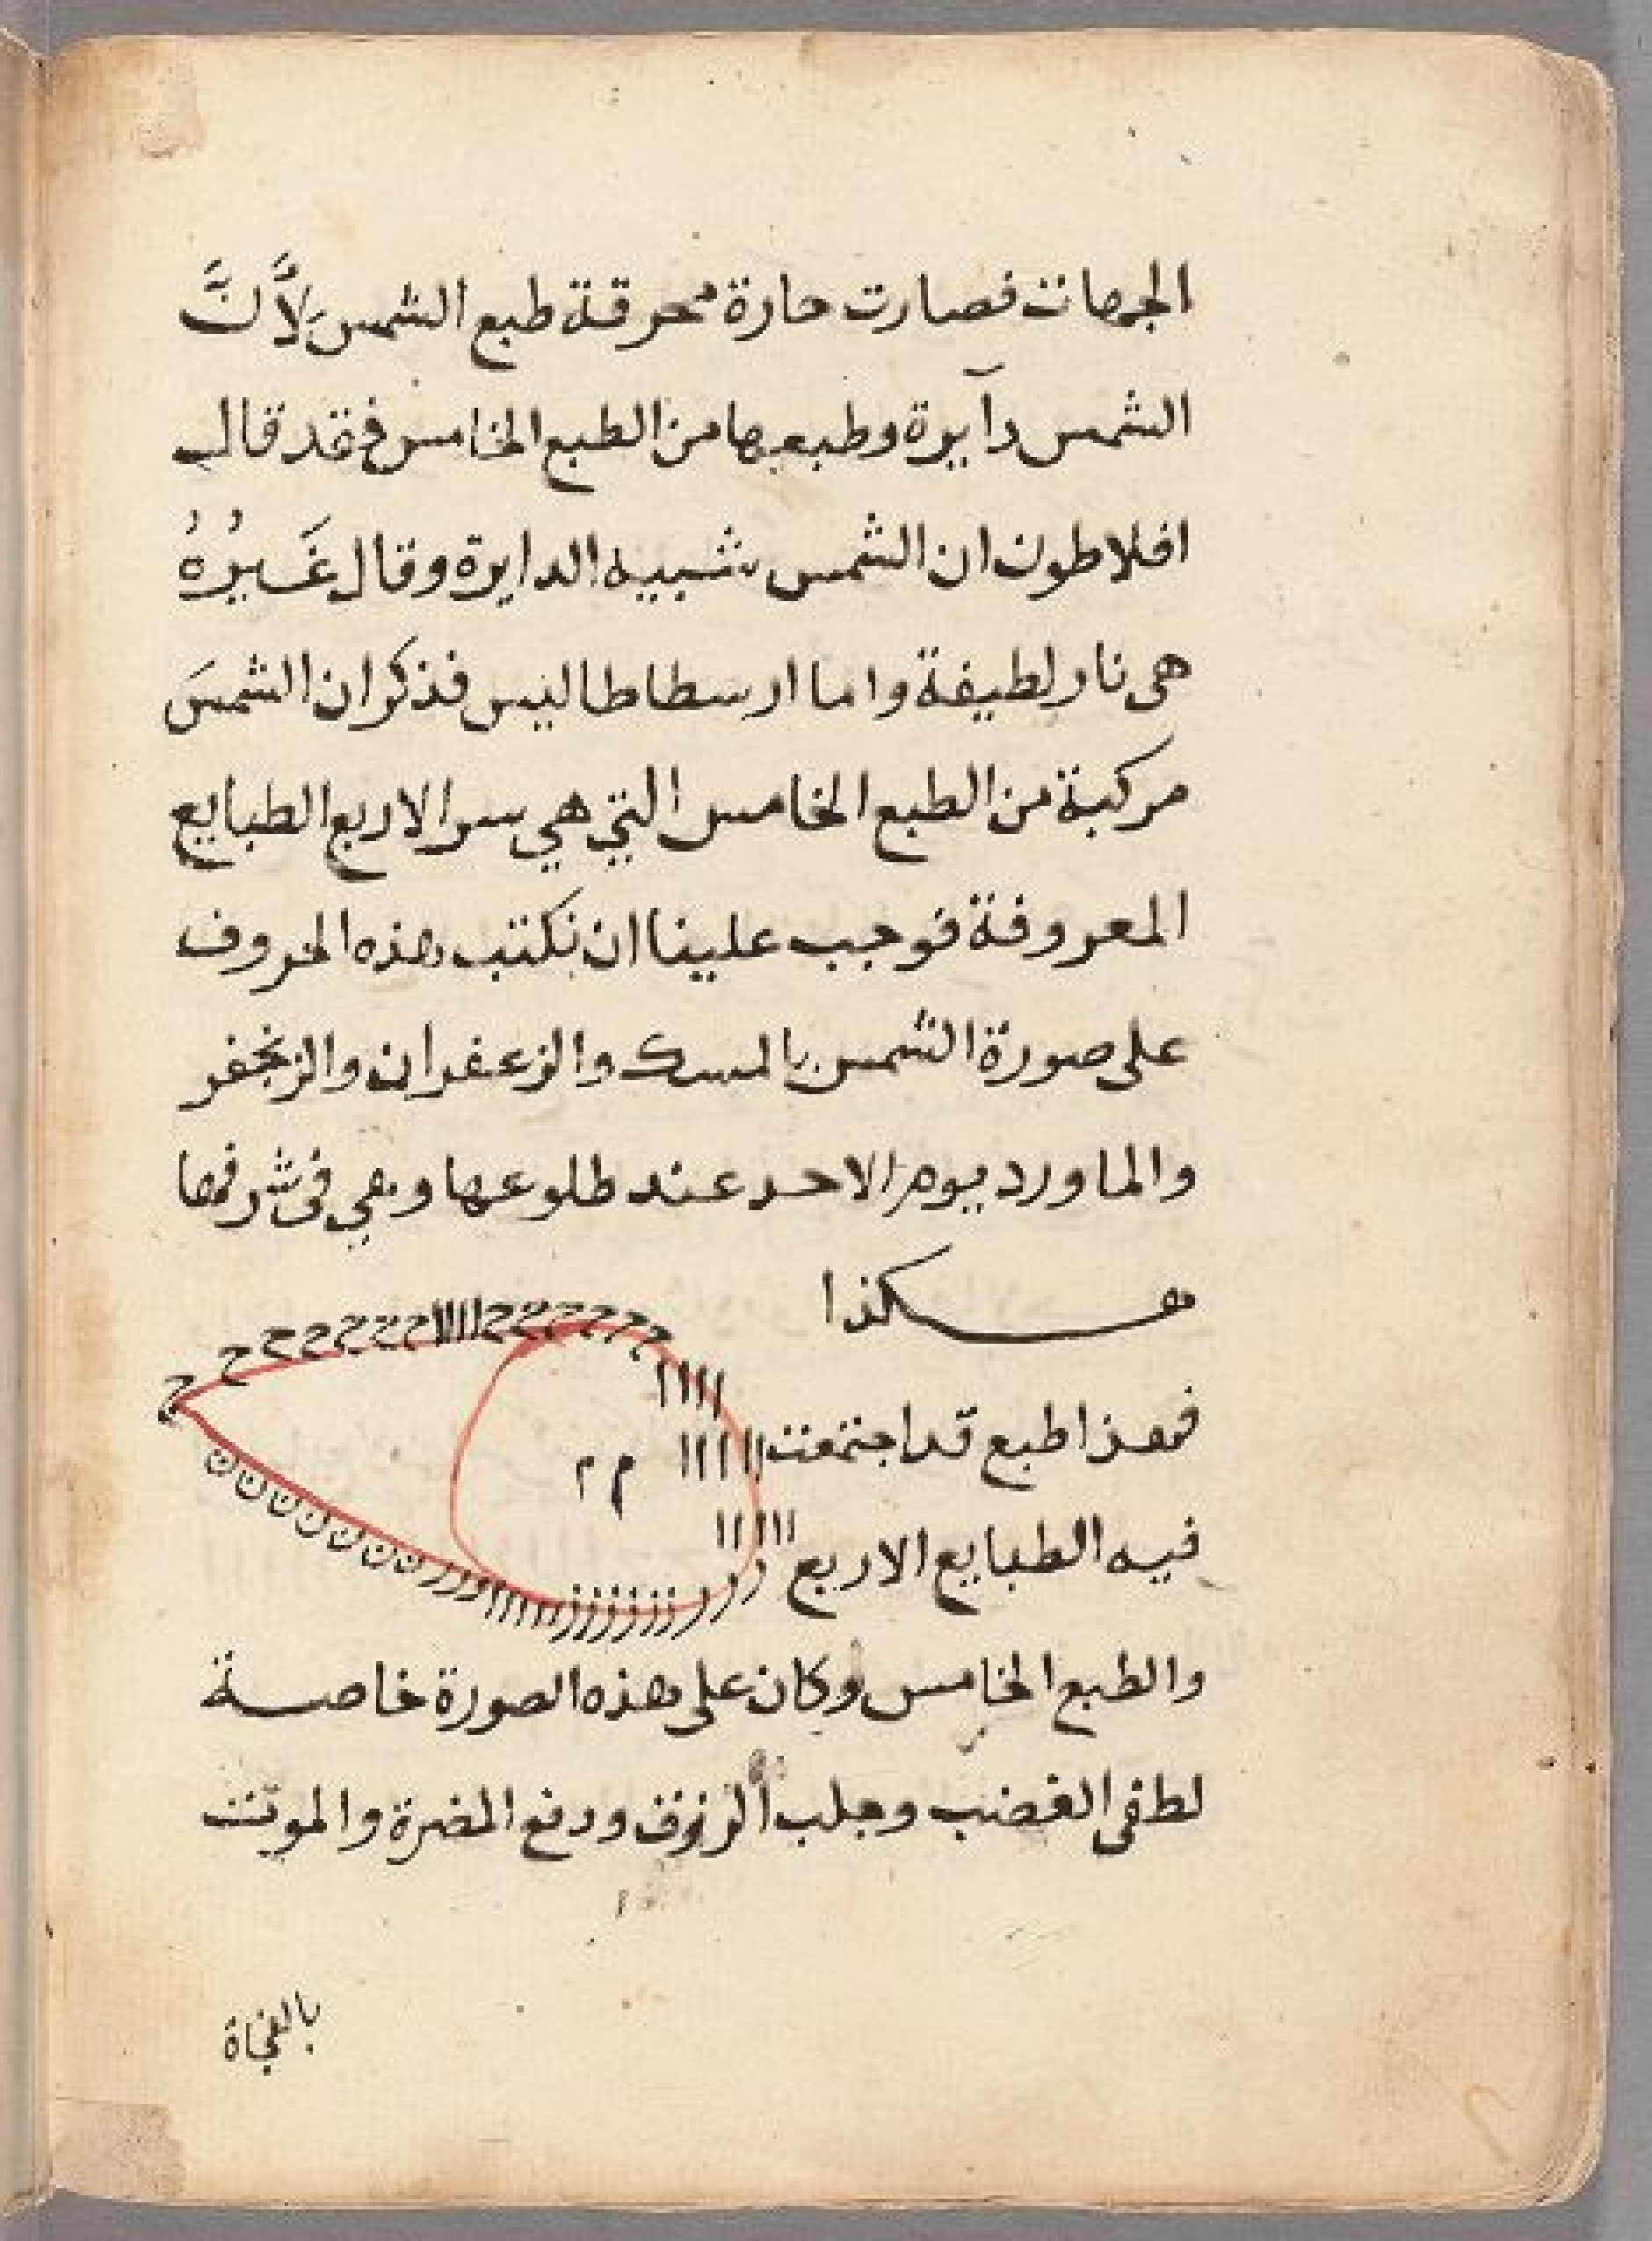 الجهات فصارت حارة محرقة طبع الشمس لأنَّ
الشمس دآيرة وطبعها من الطبع الخامس فقد قال
افلاطون ان الشمس شبيه الدايرة وقال غَيرُهُ
هى نار لطيفة واما ارسطاطاليس فذكر ان الشمسَ
مركبة من الطبع الخامس التي هي سر الاربع الطبايع
المعروفة فوجب علينا ان نكتب هذه الحروف
على صورة الشمس بالمسك والزعفران والزنجفر
والماورد يوم الاحد عند طلوعها وهي فى شرفها
هكذا
فهذا طبع قد اجتمعت
فيه الطبايع الاربع
والطبع الخامس وكان على هذه الصورة خاصة
لطفى الغضب وجلب الرزق ودفع المضرة والموت
بالفجاة